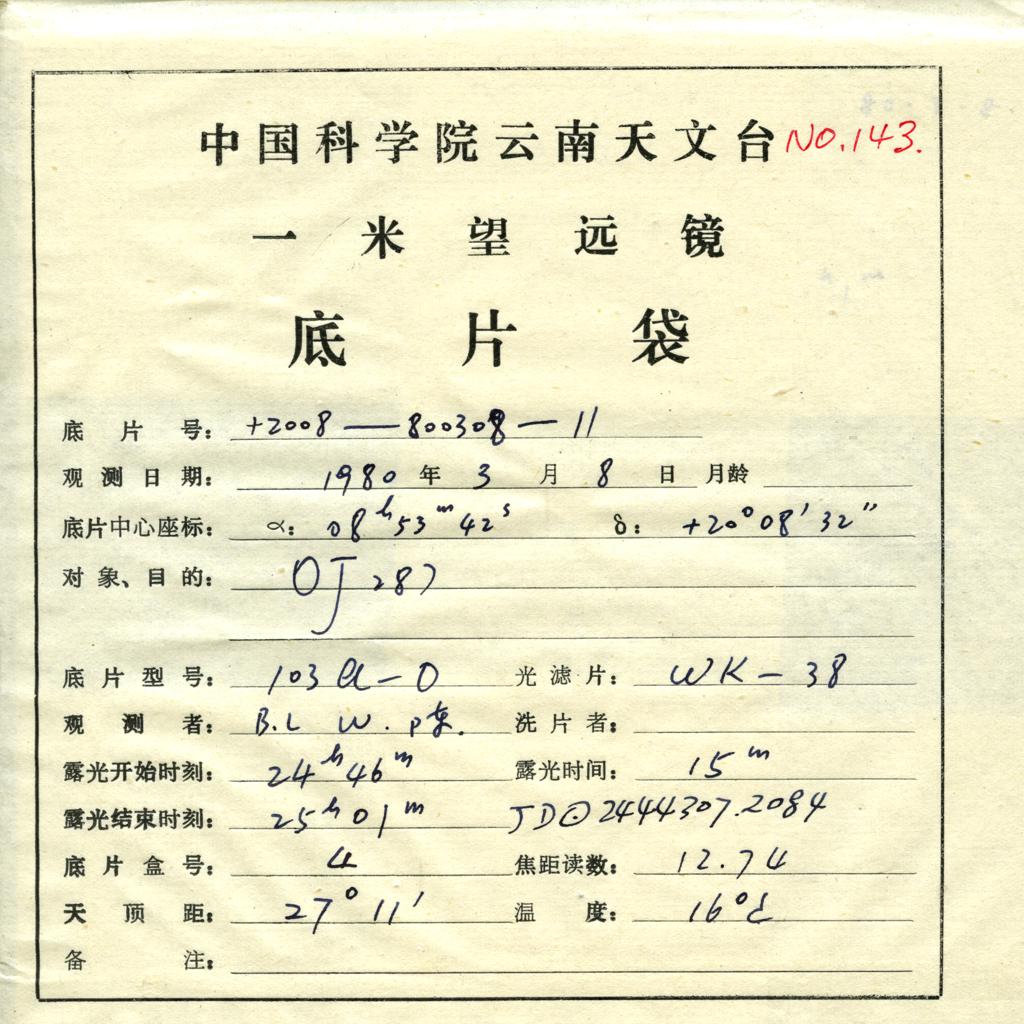 中国科学院云南天文台 NO.143.
一米望远镜
底片袋
底片号: +2008—800308—11
观测日期: 1980年3月8日 月龄
底片中心座标: α: 08h53m42s δ: +20°08′32″
对象、目的: OJ 287
底片型号: 103a-O 光滤片: WK-38
观测者: B.L W. 陈. 洗片者:
露光开始时刻: 24h46m 露光时间: 15m
露光结束时刻: 25h01m JD⊙2444307.2084
底片盒号: 4 焦距读数: 12.74
天顶距: 27°11′ 温度: 16°C
备注: